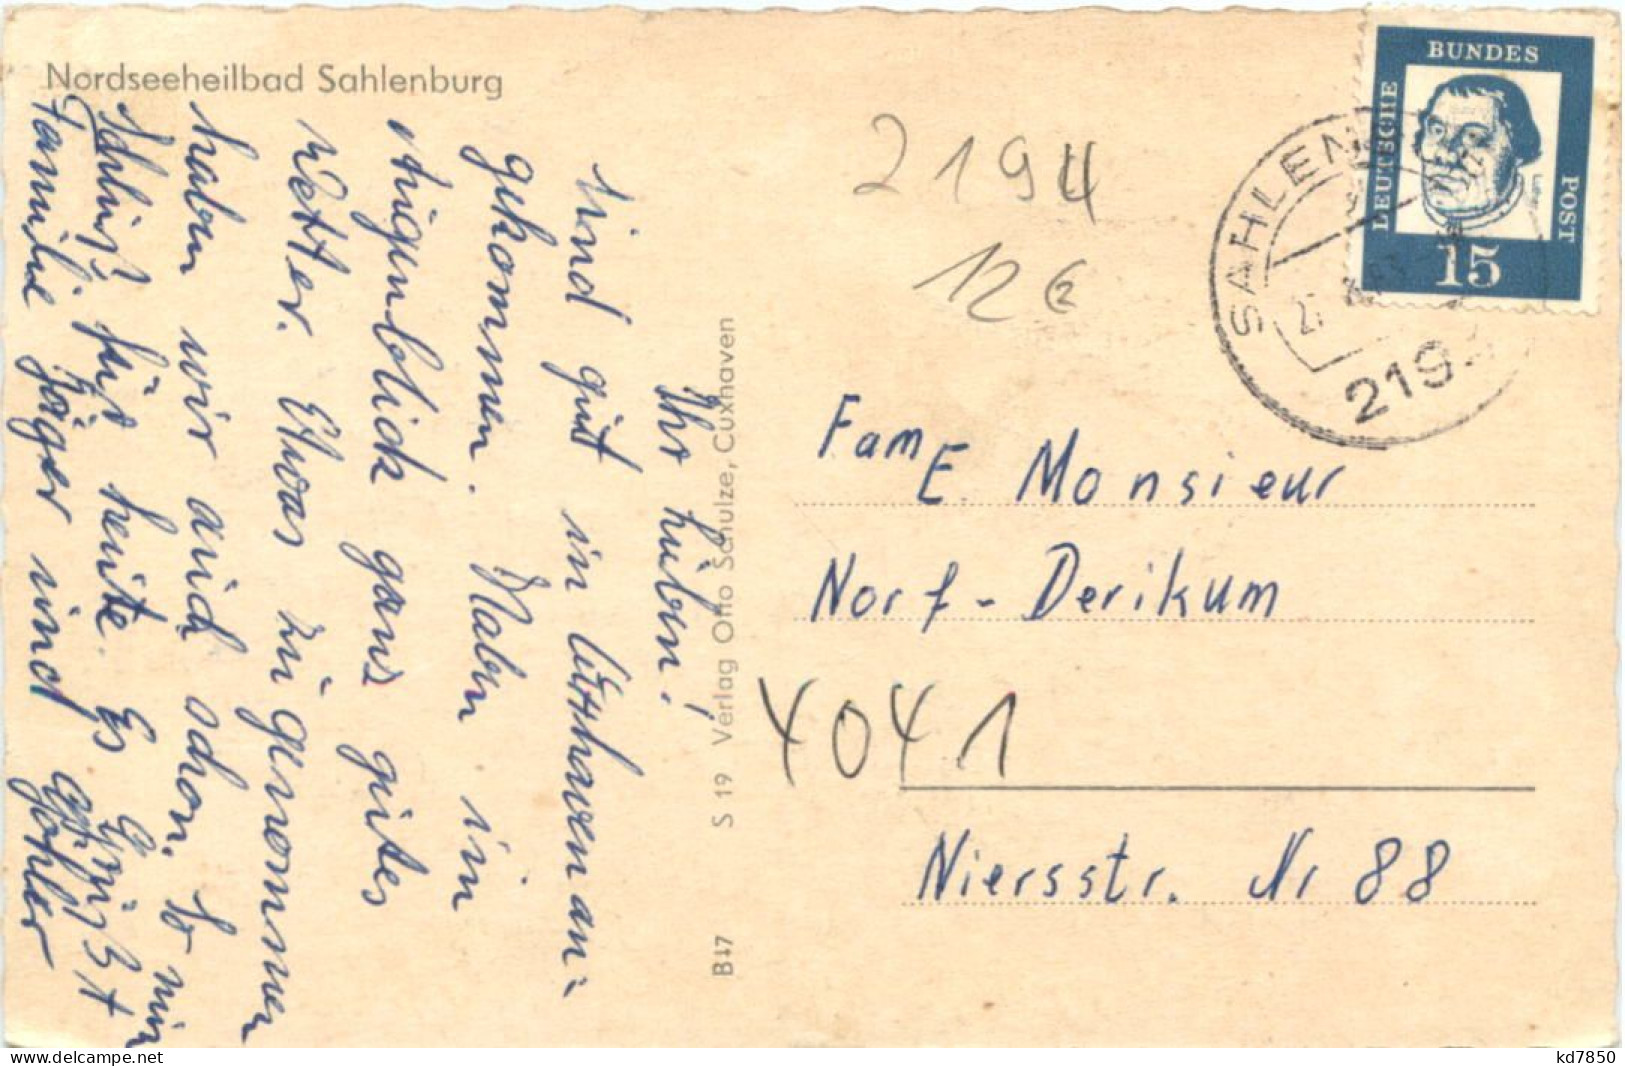 Nordseeheilbad Sahlenburg
Ihr Lieben!
Sind gut in Cuxhaven an=
gekommen. Haben im
Augenblick ganz gutes
Wetter. Etwas zugenommen
haben wir auch schon. So nun
Schluß für heute. Es grüßt
Familie Jäger und Göhler
B 17 S 19 Verlag Otto Schulze, Cuxhaven
2194
12 €
DEUTSCHE
BUNDES
POST
15
SAHLEN
219
Fam E. Monsieur
Norf - Derikum
4041
Niersstr. Nr 88
delcampe.net
kd7850